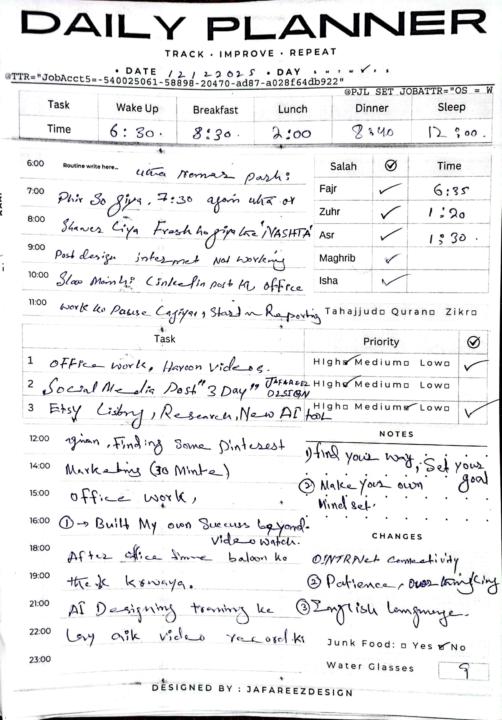 DAILY PLANNER
TRACK • IMPROVE • REPEAT
• DATE 12/2025 • DAY
@TTR="JobAcct5=-540025061-58898-20470-ad87-a028f64db922"
@PJL SET JOBATTR="OS = W
Task Wake Up Breakfast Lunch Dinner Sleep
Time 6:30. 8:30. 2:00 8:40 12:00.
6:00 Routine write here.. utha Namaz parhi
Salah Time
7:00 Phir So giya, 7:30 again utha or
Fajr 6:35
8:00 Shawer Liya Fresh ho giya ka 'NASHTA'
Zuhr 1:20
9:00 Post design internet Not working
Asr 1:30.
Maghrib
10:00 Slow Linkedin post office
Isha
11:00 work ko Pause Start Reporting
Tahajjud Quran Zikr
Task Priority
1 office work, Haroon Videos. High Medium Low
2 Social Media Post "3 Day" JAFAREEZ DESIGN High Medium Low
3 Etsy Listing, Research, New AI tool High Medium Low
NOTES
12:00 Finding Some Pinterest
14:00 Marketing (30 Minte)
15:00 office work,
1) find your way, Set your goal
② Make your own Mindset.
16:00 ① → Built My own Success beyond.
Video watch.
CHANGES
18:00 After office time baloon ko
① INTRNet Connectivity
19:00 theek karwaya.
② Patience, over thinking
21:00 AI Designing training ke
③ English language.
22:00 Lavy aik video record ki
Junk Food: Yes No
23:00
Water Glasses 9
DESIGNED BY : JAFAREEZDESIGN